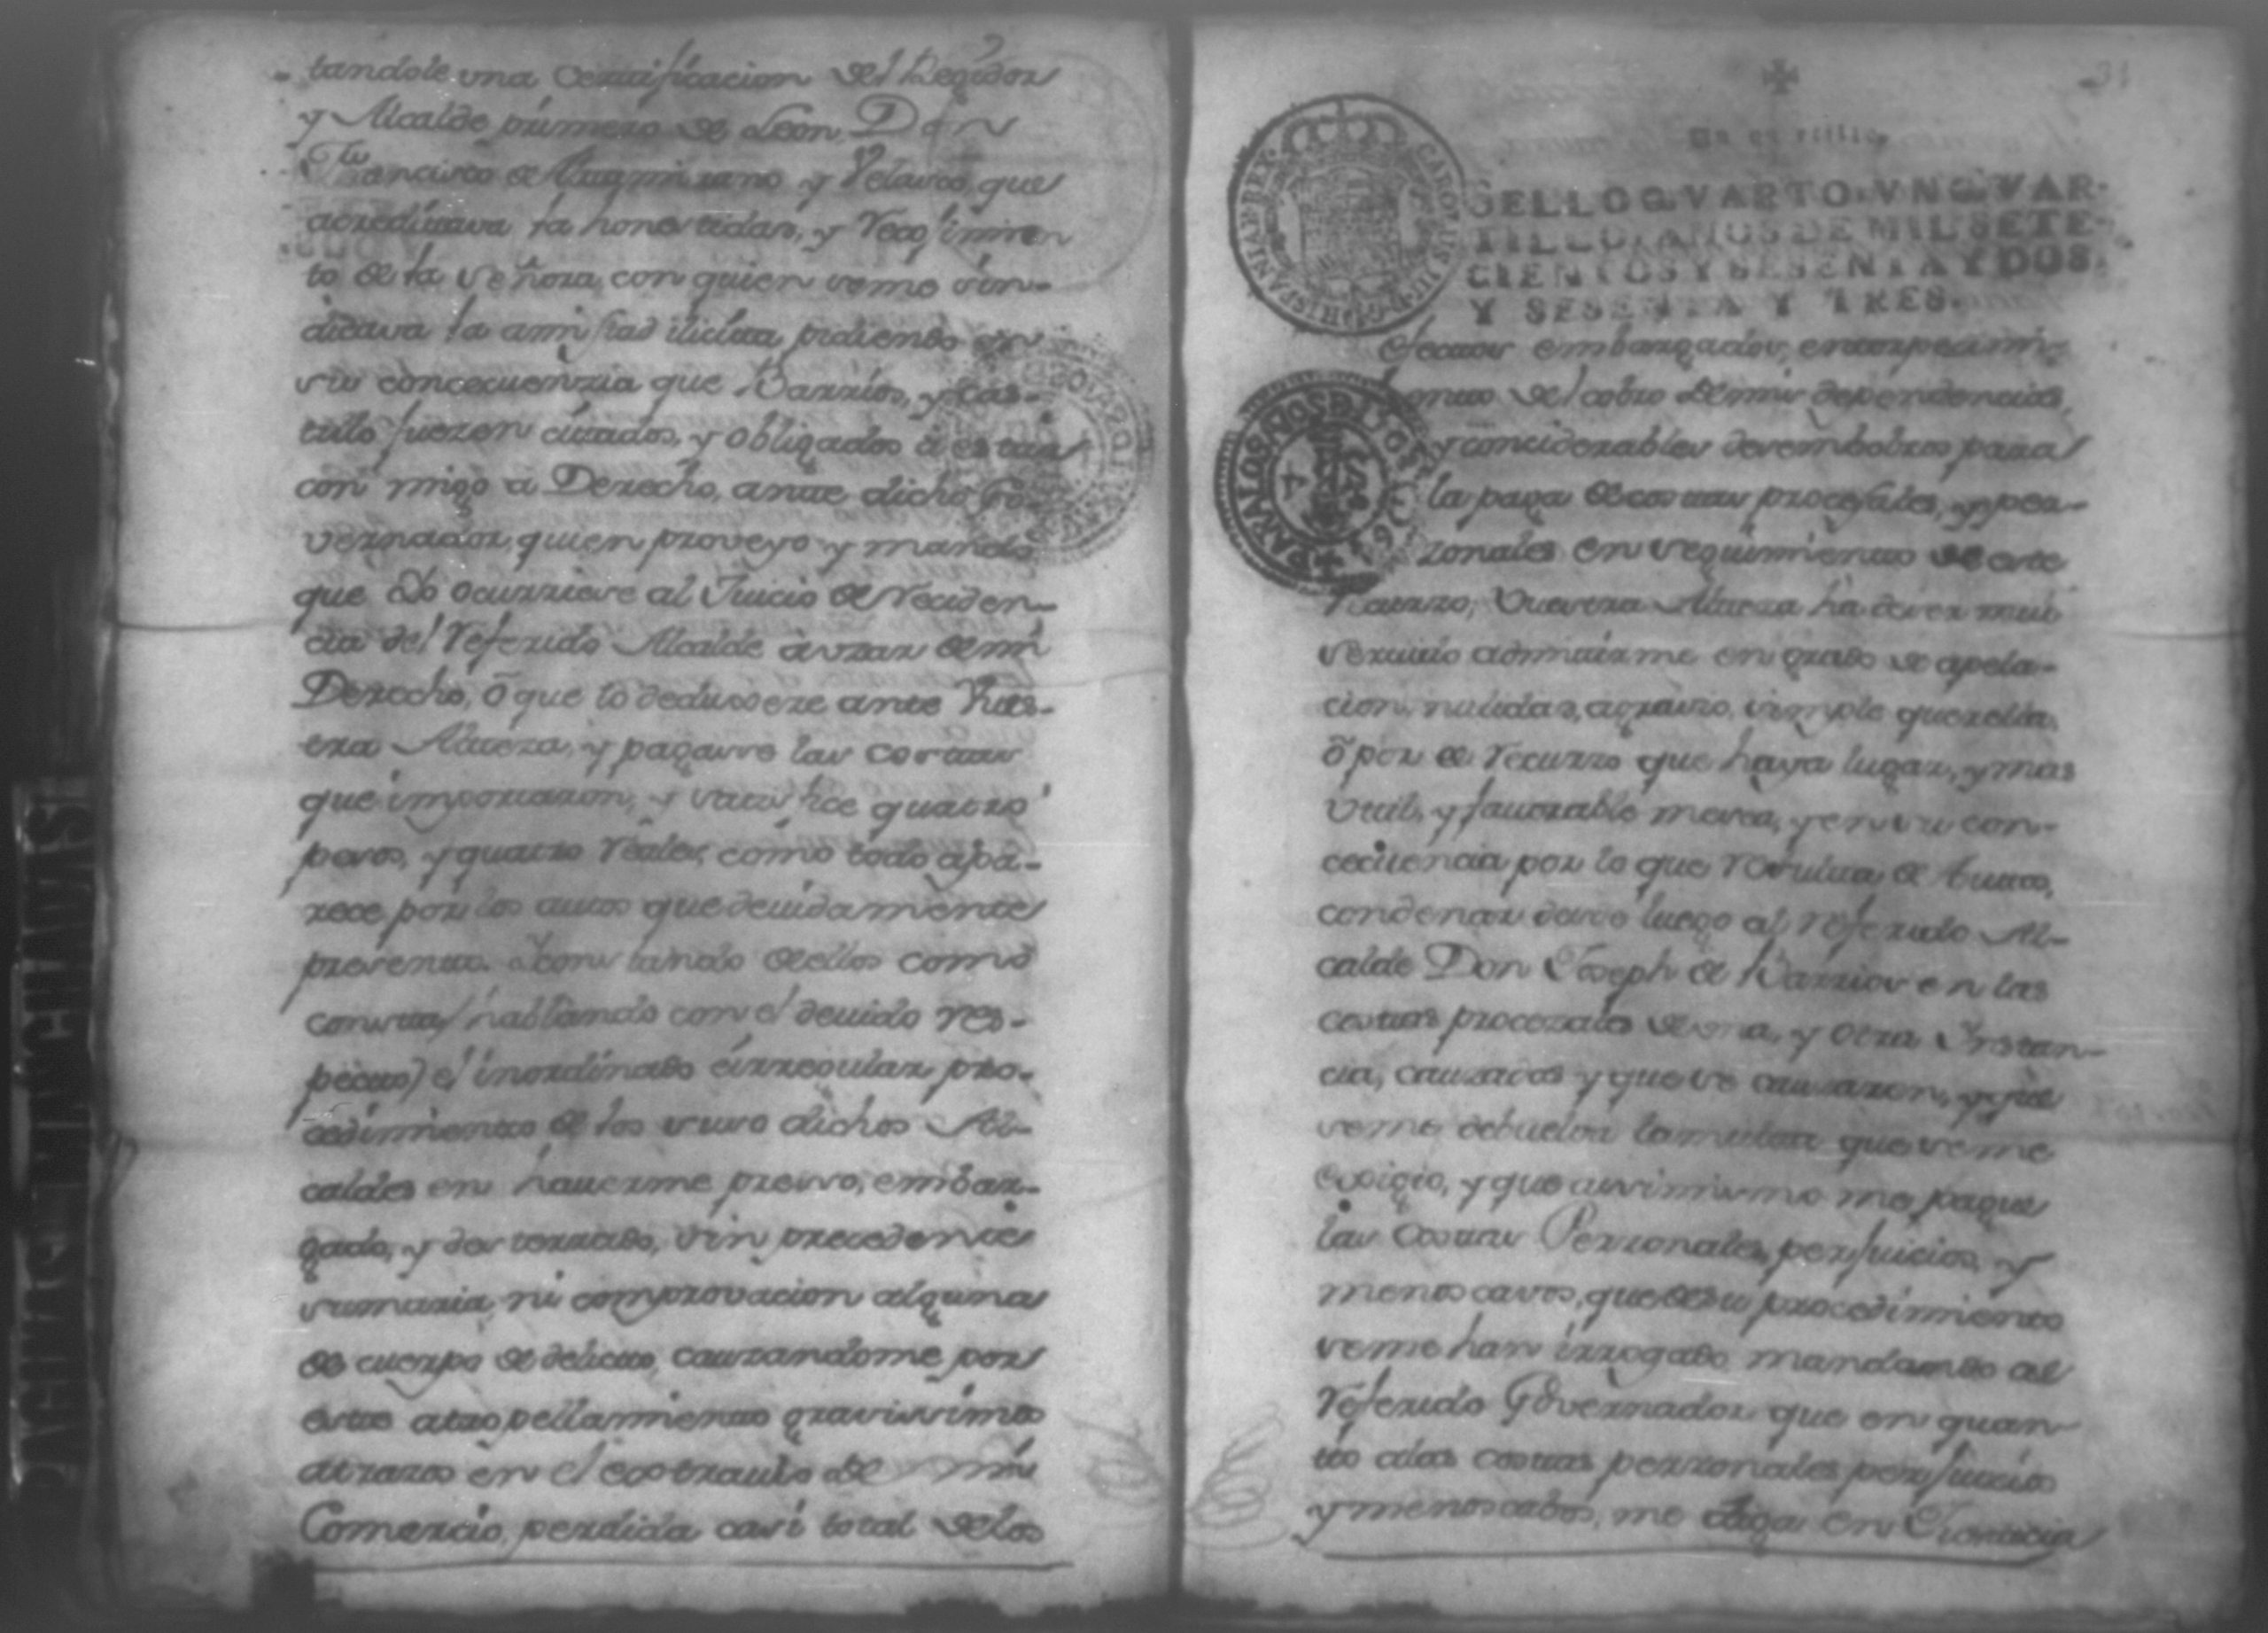 tandole una certificacion del Regidor
y Alcalde primero de Leon Don
Francisco de y Velasco, que
acreditava la honestidad, y recojimien
to de la señora con quien seme sin-
dicava la amistad ilicita pidiendo en
su concecuenzia que Barrios, y Cas-
tillo fuezen citados, y obligados á estar
con migo a Derecho, ante dicho Go-
vernador, quien proveyo y mandó
que Yo ocurriese al Juicio de reciden-
cia del referido Alcalde à vzar de mi
Derecho, ó que lo deduxere ante Vues-
tra Alteza, y pagasse las costas
que importaron, y satisfice quatro
pesos, y quatro reales, como todo apa-
rece por los autos que devidamente
presento. Y constando de ellos como
consta (hablando con el devido res-
pecto) el inordinado é irregular pro-
cedimiento de los suso dichos Al-
caldes en hauerme preso, embar-
gado, y desterrado, sin precedente
sumaria, ni comprovacion alguna
de cuerpo de delicto, cauzandome por
este atropellamiento gravissimos
atrazos en el extravio de mi
Comercio, perdida casi total delos
31
HISPANIARUM REX CAROLUS III D G
SELLO QVARTO, VN QVAR-
TILLO, AÑOS DE MIL SETE-
CIENTOS Y SESENTA Y DOS,
Y SESENTA Y TRES.
PARA LOS AÑOS DE 1764 Y 65
efectos embargados, entorpecimi-
ento del cobro de mis dependencias,
y conciderables desembolsos para
la paga de costas procesales, y per-
zonales en seguimiento de este
recurzo; Vuestra Alteza há de ser mui
servido admitirme en grado de apela-
cion, nulidad, agravio, simple querella,
ó por el recurzo que haya lugar, y mas
util, y fauorable meresca, y en su con-
cecuencia por lo que resulta de Autos,
condenar desde luego al referido Al-
calde Don Joseph de Barrios en las
costas procezales de una, y otra Instan-
cia, cauzadas y que se cauzaren, y que
seme debuelva la multa que seme
exigio, y que assimismo me pague
las costas Perzonales, perjuicios, y
menoscavos, que de su procedimiento
seme han irrogado mandando al
referido Governador que en quan-
to alas costas perzonales perjuicios
y menoscabos, me haga en Justicia